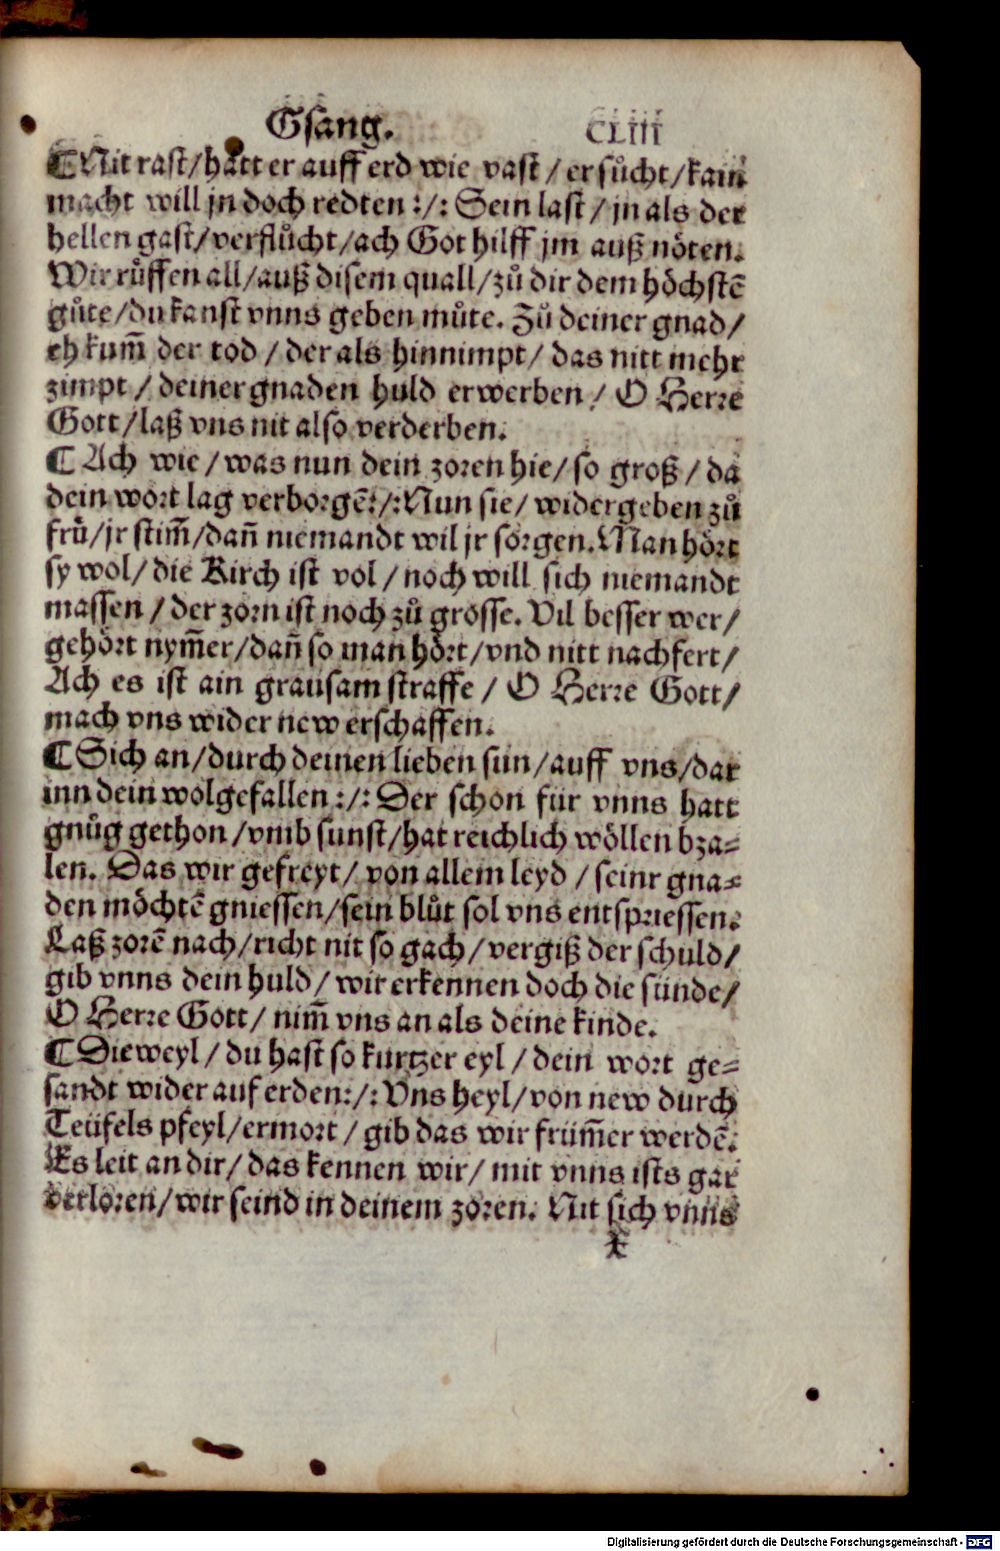 Gsang. CLIII
¶ Nit rast/hatt er auff erd wie vast / er sůcht/kain
macht will jn doch redten :/: Sein last / jn als der
hellen gast/verflůcht/ach Got hilff jm auß nöten.
Wir růffen all/auß disem quall/zů dir dem höchstē
gůte/du kanst vnns geben můte. Zů deiner gnad/
eh kum̄ der tod / der als hinnimpt/ das nitt mehr
zimpt / deiner gnaden huld erwerben / O Herre
Gott/laß vns nit also verderben.
¶ Ach wie/was nun dein zoren hie/so groß/da
dein wort lag verborgē:/:Nun sie/ widergeben zů
frů/jr stim̄/dan̄ niemandt wil jr sorgen. Man hört
sy wol/die Kirch ist vol / noch will sich niemandt
massen / der zorn ist noch zů grosse. Vil besser wer/
gehört nym̄er/dan̄ so man hört/vnd nitt nachfert/
Ach es ist ain grausam straffe / O Herre Gott/
mach vns wider new erschaffen.
¶ Sich an/durch deinen lieben sun/auff vns/dar
inn dein wolgefallen :/: Der schon für vnns hatt
gnůg gethon/vmb sunst/hat reichlich wöllen bza⸗
len. Das wir gefreyt/ von allem leyd / seinr gna⸗
den möchtē gniessen/sein blůt sol vns entspriessen.
Laß zorē nach/richt nit so gach/vergiß der schuld/
gib vnns dein huld/ wir erkennen doch die sünde/
O Herre Gott/ nim̄ vns an als deine kinde.
¶ Die weyl / du hast so kurtzer eyl / dein wort ge⸗
sandt wider auf erden:/: Vns heyl/von new durch
Teüfels pfeyl/ermort / gib das wir früm̄er werdē.
Es leit an dir/das kennen wir/ mit vnns ists gar
verloren/wir seind in deinem zoren. Nit sich vnns
Digitalisierung gefördert durch die Deutsche Forschungsgemeinschaft - DFG